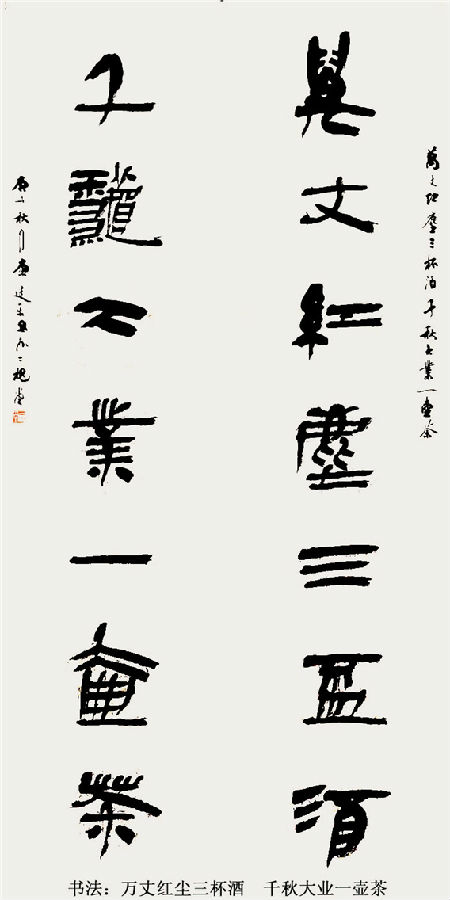 萬丈红塵三杯酒千秋大業一壺茶
萬丈紅塵三盃酒
千龝大業一壺茶
书法：万丈红尘三杯酒 千秋大业一壶茶